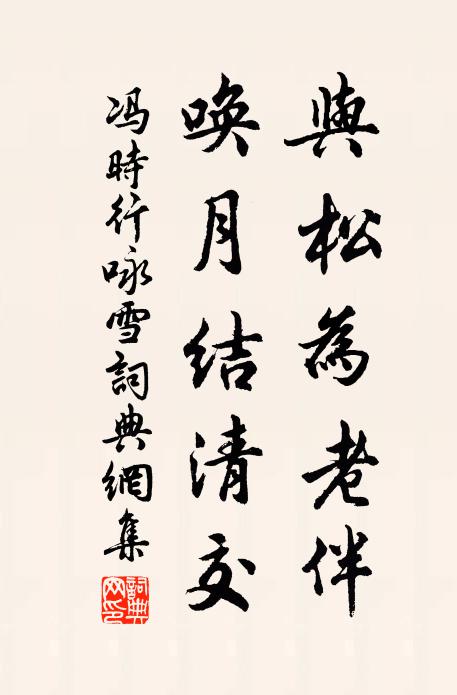 與松為老伴
喚月結清交
冯時行咏雪詞典網集
詞典網印